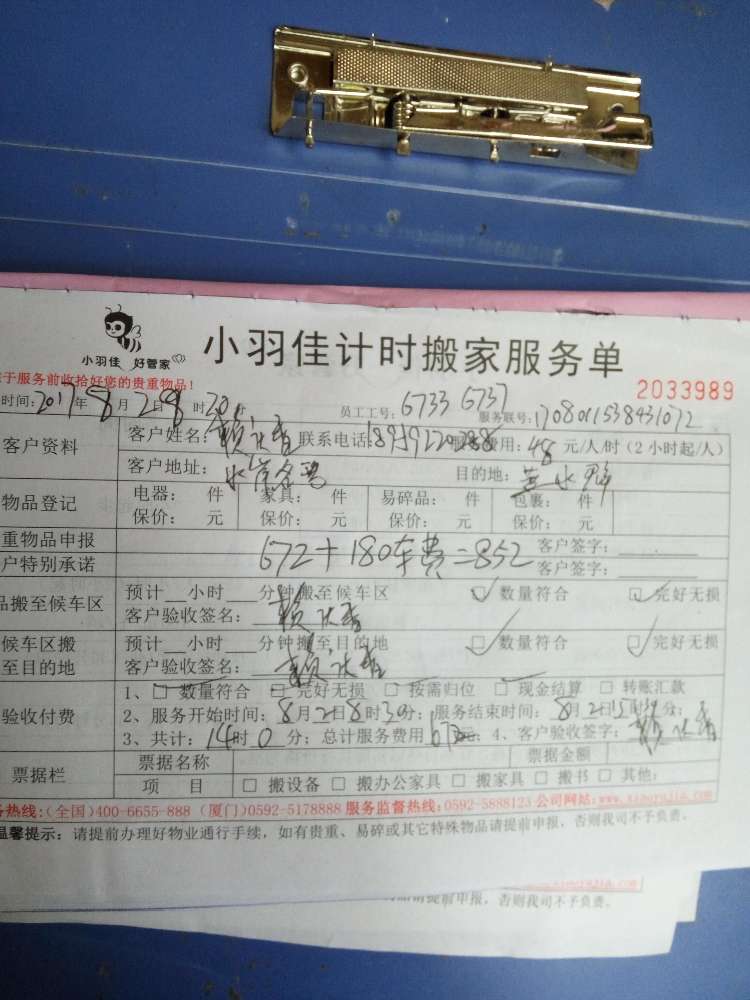 小羽佳 好管家 小羽佳计时搬家服务单
于服务前收拾好您的贵重物品! 2033989
时间:2017年8月2日8时30分 员工工号:6733 6737 服务联号:1708011538431072
客户资料 客户姓名: 联系电话: 费用:48元/人/时(2小时起/人)
客户地址:水岸名 目的地:
物品登记 电器: 件 家具: 件 易碎品: 件 包裹: 件
保价: 元 保价: 元 保价: 元 保价: 元
重物品申报 672+180车费=852 客户签字:
户特别承诺 客户签字:
品搬至候车区 预计__小时__分钟搬至候车区 数量符合 完好无损
客户验收签名:
候车区搬至目的地 预计__小时__分钟搬至目的地 数量符合 完好无损
客户验收签名:
验收付费 1、数量符合 完好无损 按需归位 现金结算 转账汇款
2、服务开始时间:8月2日8时30分;服务结束时间:8月2日15时 分;
3、共计:14时0分;总计服务费用 4、客户验收签字:
票据栏 票据名称 票据金额
项 目 搬设备 搬办公家具 搬家具 搬书 其他:
务热线:(全国)400-6655-888 (厦门)0592-5178888 服务监督热线:0592-5888123 公司网站:www.xiaoyujia.com
温馨提示:请提前办理好物业通行手续,如有贵重、易碎或其它特殊物品请提前申报,否则我司不予负责。
请提前申报,否则我司不予负责。